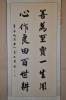 善為至寶一生用
心作良田百世耕